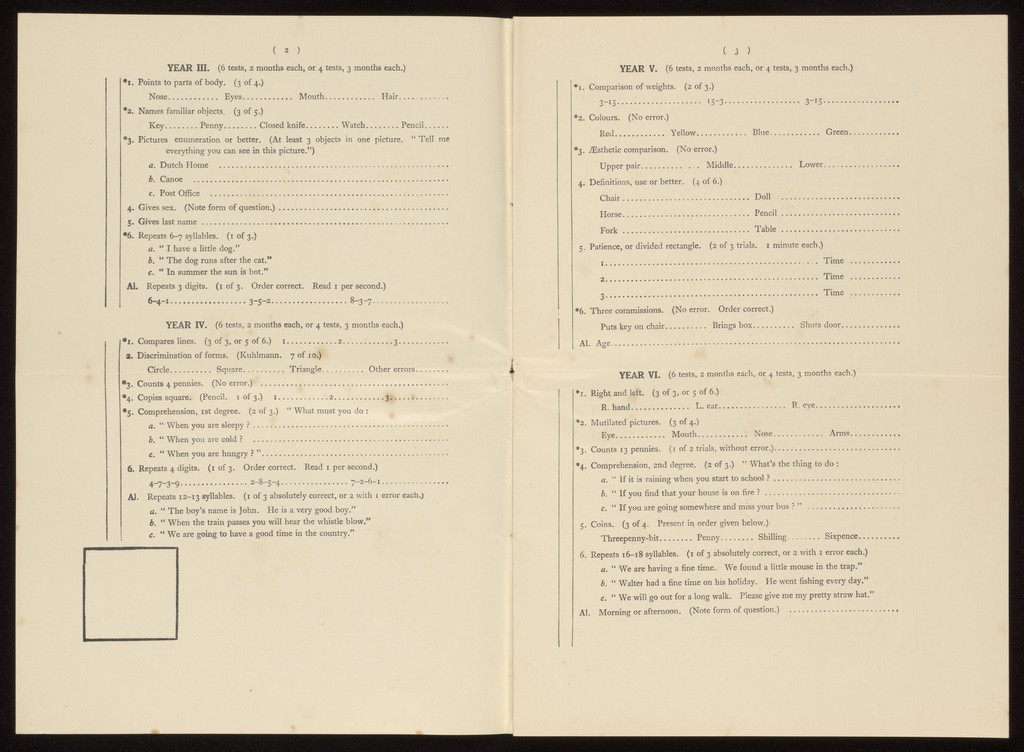 ( 2 )
YEAR III. (6 tests, 2 months each, or 4 tests, 3 months each.)
*1. Points to parts of body. (3 of 4.)
Nose............ Eyes............ Mouth............ Hair............
*2. Names familiar objects. (3 of 5.)
Key........ Penny........ Closed knife........ Watch........ Pencil......
*3. Pictures enumeration or better. (At least 3 objects in one picture. “ Tell me
everything you can see in this picture.”)
a. Dutch Home ............
b. Canoe ............
c. Post Office ............
4. Gives sex. (Note form of question.) ............
5. Gives last name ............
*6. Repeats 6–7 syllables. (1 of 3.)
a. “ I have a little dog.”
b. “ The dog runs after the cat.”
c. “ In summer the sun is hot.”
Al. Repeats 3 digits. (1 of 3. Order correct. Read 1 per second.)
6–4–1............ 3–5–2............ 8–3–7............
YEAR IV. (6 tests, 2 months each, or 4 tests, 3 months each.)
*1. Compares lines. (3 of 3, or 5 of 6.) 1............2............3............
2. Discrimination of forms. (Kuhlmann. 7 of 10.)
Circle.......... Square.......... Triangle.......... Other errors........
*3. Counts 4 pennies. (No error.) ............
*4. Copies square. (Pencil. 1 of 3.) 1............2............3............
*5. Comprehension, 1st degree. (2 of 3.) “ What must you do :
a. “ When you are sleepy ? ............
b. “ When you are cold ? ............
c. “ When you are hungry ? ”............
6. Repeats 4 digits. (1 of 3. Order correct. Read 1 per second.)
4–7–3–9............ 2–8–5–4............ 7–2–6–1............
Al. Repeats 12–13 syllables. (1 of 3 absolutely correct, or 2 with 1 error each.)
a. “ The boy's name is John. He is a very good boy.”
b. “ When the train passes you will hear the whistle blow.”
c. “ We are going to have a good time in the country.”
( 3 )
YEAR V. (6 tests, 2 months each, or 4 tests, 3 months each.)
*1. Comparison of weights. (2 of 3.)
3–15............ 15–3............ 3–15............
*2. Colours. (No error.)
Red............ Yellow............ Blue............ Green............
*3. Æsthetic comparison. (No error.)
Upper pair............ Middle............ Lower............
4. Definitions, use or better. (4 of 6.)
Chair ............ Doll ............
Horse............ Pencil ............
Fork ............ Table ............
5. Patience, or divided rectangle. (2 of 3 trials. 1 minute each.)
1............ Time ............
2............ Time ............
3............ Time ............
*6. Three commissions. (No error. Order correct.)
Puts key on chair.......... Brings box.......... Shuts door............
Al. Age............
YEAR VI. (6 tests, 2 months each, or 4 tests, 3 months each.)
*1. Right and left. (3 of 3, or 5 of 6.)
R. hand............ L. ear............ R. eye............
*2. Mutilated pictures. (3 of 4.)
Eye............ Mouth............ Nose............ Arms............
*3. Counts 13 pennies. (1 of 2 trials, without error.)............
*4. Comprehension, 2nd degree. (2 of 3.) “ What's the thing to do :
a. “ If it is raining when you start to school ? ............
b. “ If you find that your house is on fire ? ............
c. “ If you are going somewhere and miss your bus ? ” ............
5. Coins. (3 of 4. Present in order given below.)
Threepenny-bit........ Penny........ Shilling........ Sixpence..........
6. Repeats 16–18 syllables. (1 of 3 absolutely correct, or 2 with 1 error each.)
a. “ We are having a fine time. We found a little mouse in the trap.”
b. “ Walter had a fine time on his holiday. He went fishing every day.”
c. “ We will go out for a long walk. Please give me my pretty straw hat.”
Al. Morning or afternoon. (Note form of question.) ............